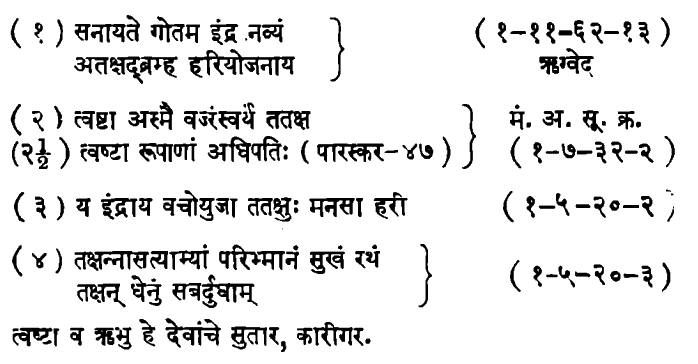 ( १ ) सनायते गोतम इंद्र नव्यं ( १-११-६२-१३ )
अतक्षद्ब्रम्ह हरियोजनाय ऋग्वेद
( २ ) त्वष्टा अस्मै वज्रंस्वर्थं ततक्ष मं. अ. सू. क्र.
(२½) त्वष्टा रूपाणां अधिपतिः ( पारस्कर-४७ ) ( १-७-३२-२ )
( ३ ) य इंद्राय वचोयुजा ततक्षुः मनसा हरी ( १-५-२०-२ )
( ४ ) तक्षन्नासत्याम्यां परिभ्मानं सुखं रथं ( १-५-२०-३ )
तक्षन् धेनुं सबर्दुघाम्
त्वष्टा व ऋभु हे देवांचे सुतार, कारीगर.